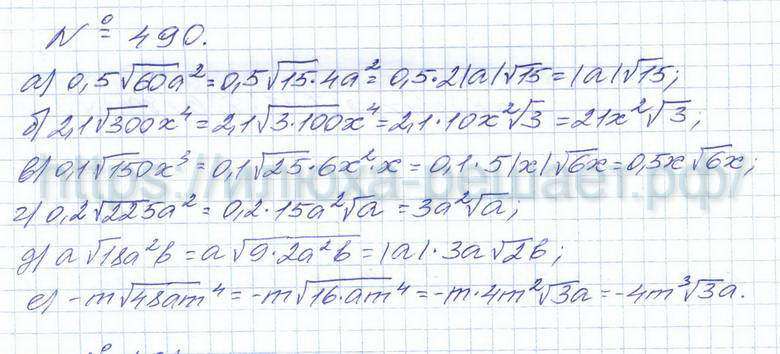 № 490.
а) 0,5√60a² = 0,5√15·4a² = 0,5·2|a|√15 = |a|√15;
б) 2,1√300x⁴ = 2,1√3·100x⁴ = 2,1·10x²√3 = 21x²√3;
в) 0,1√150x³ = 0,1√25·6x²·x = 0,1·5|x|√6x = 0,5x√6x;
г) 0,2√225a² = 0,2·15a²√a = 3a²√a;
д) a√18a²b = a√9·2a²b = |a|·3a√2b;
е) -m√48am⁴ = -m√16·am⁴ = -m·4m²√3a = -4m³√3a.
https://илюха-решает.рф/